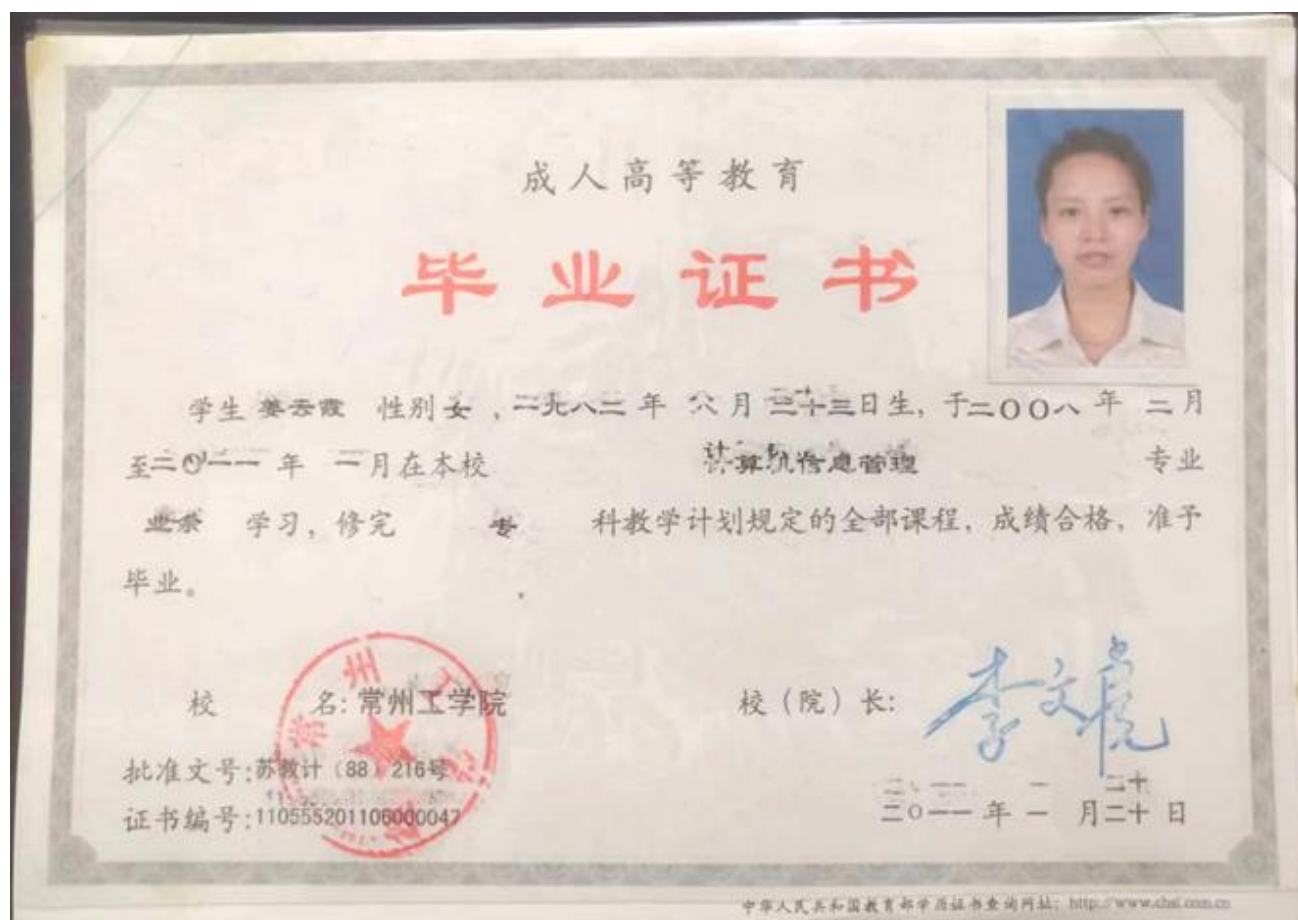 成人高等教育
毕业证书
学生 姜云霞 性别 女 , 一九八二 年 六 月 二十三日生, 于二〇〇八 年 二月
至二〇一一 年 一月在本校 计算机信息管理 专业
业余 学习, 修完 专 科教学计划规定的全部课程, 成绩合格, 准予
毕业。
校 名: 常州工学院 校（院）长: 李文虎
批准文号: 苏教计（88）216号
证书编号: 110555201106000047 二〇一一 年 一 月二十 日
中华人民共和国教育部学历证书查询网址: http://www.chsi.com.cn